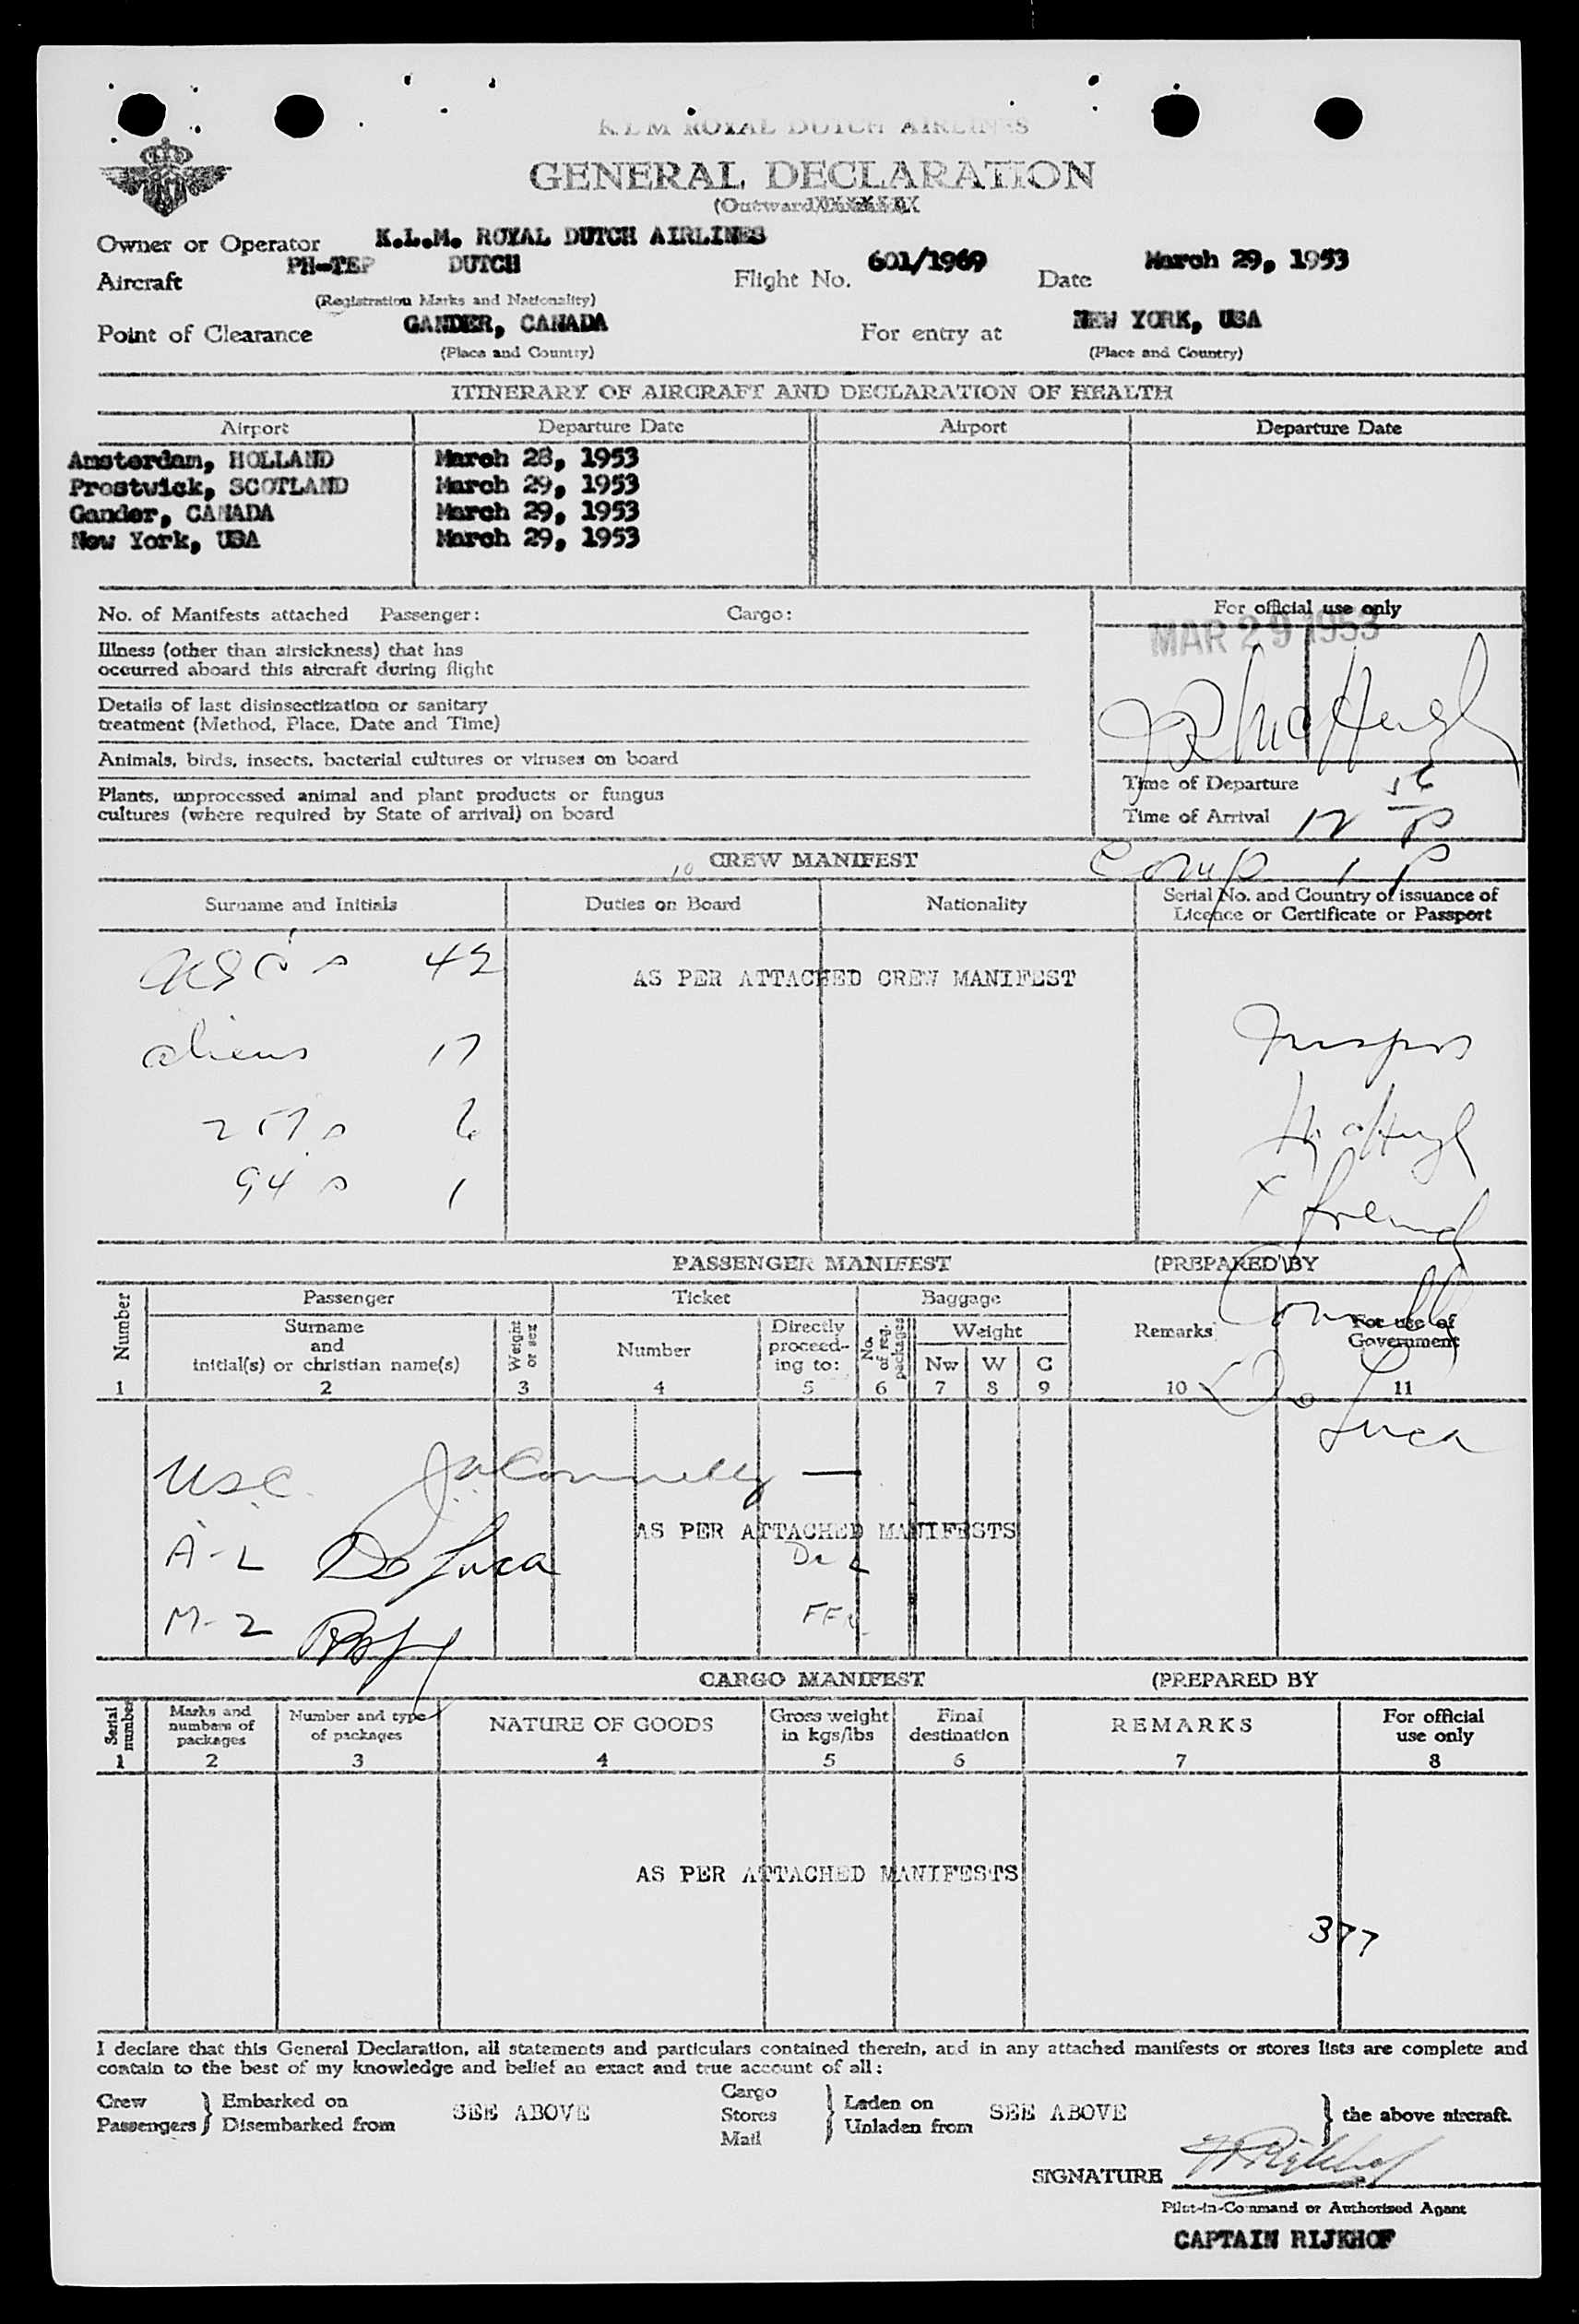 K L M ROYAL DUTCH AIRLINES
GENERAL DECLARATION
(Outward
Owner or Operator K.L.M. ROYAL DUTCH AIRLINES
Aircraft PH-TEP DUTCH Flight No. 601/1969 Date March 29, 1953
(Registration Marks and Nationality)
Point of Clearance GANDER, CANADA For entry at NEW YORK, USA
(Place and Country) (Place and Country)
ITINERARY OF AIRCRAFT AND DECLARATION OF HEALTH
Airport Departure Date Airport Departure Date
Amsterdam, HOLLAND March 28, 1953
Prestwick, SCOTLAND March 29, 1953
Gander, CANADA March 29, 1953
New York, USA March 29, 1953
No. of Manifests attached Passenger: Cargo: For official use only
MAR 29 1953
Illness (other than airsickness) that has
occurred aboard this aircraft during flight
Details of last disinsectization or sanitary
treatment (Method, Place, Date and Time)
Animals, birds, insects, bacterial cultures or viruses on board
Plants, unprocessed animal and plant products or fungus
cultures (where required by State of arrival) on board
Time of Departure
Time of Arrival 12 56 P
Comp 1 P
10 CREW MANIFEST
Surname and Initials Duties on Board Nationality Serial No. and Country of issuance of
Licence or Certificate or Passport
42
AS PER ATTACHED CREW MANIFEST
aliens 17
Insprs
257 s 6
McHugh
94 s 1
x Freund
PASSENGER MANIFEST (PREPARED BY
Connelly
Number Passenger Ticket Baggage Remarks For use of
Government
Surname
and
initial(s) or christian name(s)
Weight
or sex
Number
Directly
proceed-
ing to:
No.
of reg.
packages
Weight
Nw W C
1 2 3 4 5 6 7 8 9 10 11
De Luca
USC. J Connelly —
AS PER ATTACHED MANIFESTS
A-L De Luca De L
M-2 FF
CARGO MANIFEST (PREPARED BY
Serial
number
Marks and
numbers of
packages
Number and type
of packages
NATURE OF GOODS
Gross weight
in kgs/lbs
Final
destination
REMARKS
For official
use only
1 2 3 4 5 6 7 8
AS PER ATTACHED MANIFESTS
377
I declare that this General Declaration, all statements and particulars contained therein, and in any attached manifests or stores lists are complete and
contain to the best of my knowledge and belief an exact and true account of all:
Crew
Passengers
Embarked on
Disembarked from
SEE ABOVE
Cargo
Stores
Mail
Laden on
Unladen from
SEE ABOVE
the above aircraft.
SIGNATURE
Pilot-in-Command or Authorised Agent
CAPTAIN RIJKHOF